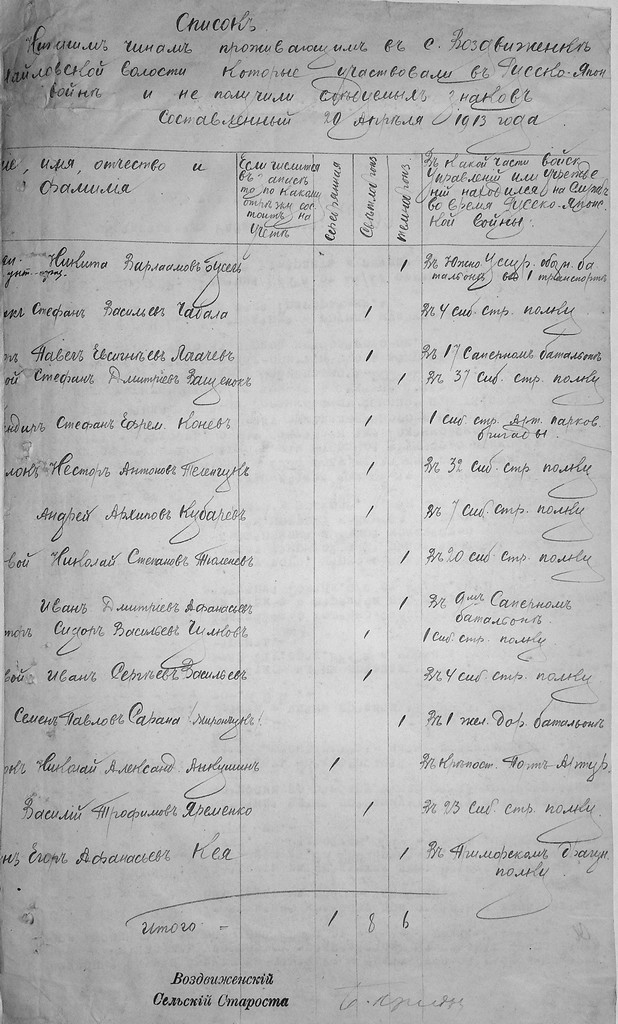 Списокъ
Нижнимъ чинамъ проживающимъ въ с. Воздвиженкѣ
айловской волости которые участвовали въ Русско-Япон
войнѣ и не получили знаковъ
Составленный 29 Апрѣля 1913 года.
имя, отчество и фамилия
Если числится въ запасѣ то по какому отрѣзки сос тоитъ на учетѣ
серебрянная
Свѣтлабронз
темнабронз
Въ какой части войскъ Управленій или учрежде ній находился на службѣ во время Русско-Японс кой войны.
унт-офиц. Никита Варлаамовъ Гусевъ 1 Въ Южно-Уссур. обозн. ба тальонѣ 1 транспортъ
Стефанъ Васильевъ Чабала 1 Въ 4 сиб. стр. полку
Павелъ Евсигнѣевъ Лачевъ 1 Въ 17 Саперномъ батальонѣ
ой Стефанъ Дмитріевъ Ващенокъ 1 Въ 37 сиб. стр. полку
Стефанъ Ефрем. Коневъ 1 1 сиб. стр. Арт. парков. бригады.
Несторъ Антоновъ Теленчукъ 1 Въ 32 сиб. стр полку
Андрей Архиповъ Кубачевъ 1 Въ 7 сиб. стр. полку
вой Николай Степановъ Тюленевъ 1 Въ 20 сиб. стр. полку
Иванъ Дмитріевъ Афанасьевъ 1 Въ 9мъ Саперномъ батальонѣ.
Сидоръ Васильевъ Чилковъ 1 1 сиб. стр. полку
вой Иванъ Сергѣевъ Васильевъ 1 Въ 4 сиб. стр. полку
Семенъ Павловъ Сарана (Мирончукъ) 1 Въ 1 жел. дор. батальонѣ
Николай Александ. Анкушинъ 1 Въ Крѣпост. Портъ-Артур.
Василій Трофимовъ Яременко 1 Въ 23 сиб. стр. полку.
Егоръ Афанасьевъ Кея 1 Въ Приморскомъ Драгун. полку
Итого - 1 8 6
Воздвиженскій
Сельскій Староста